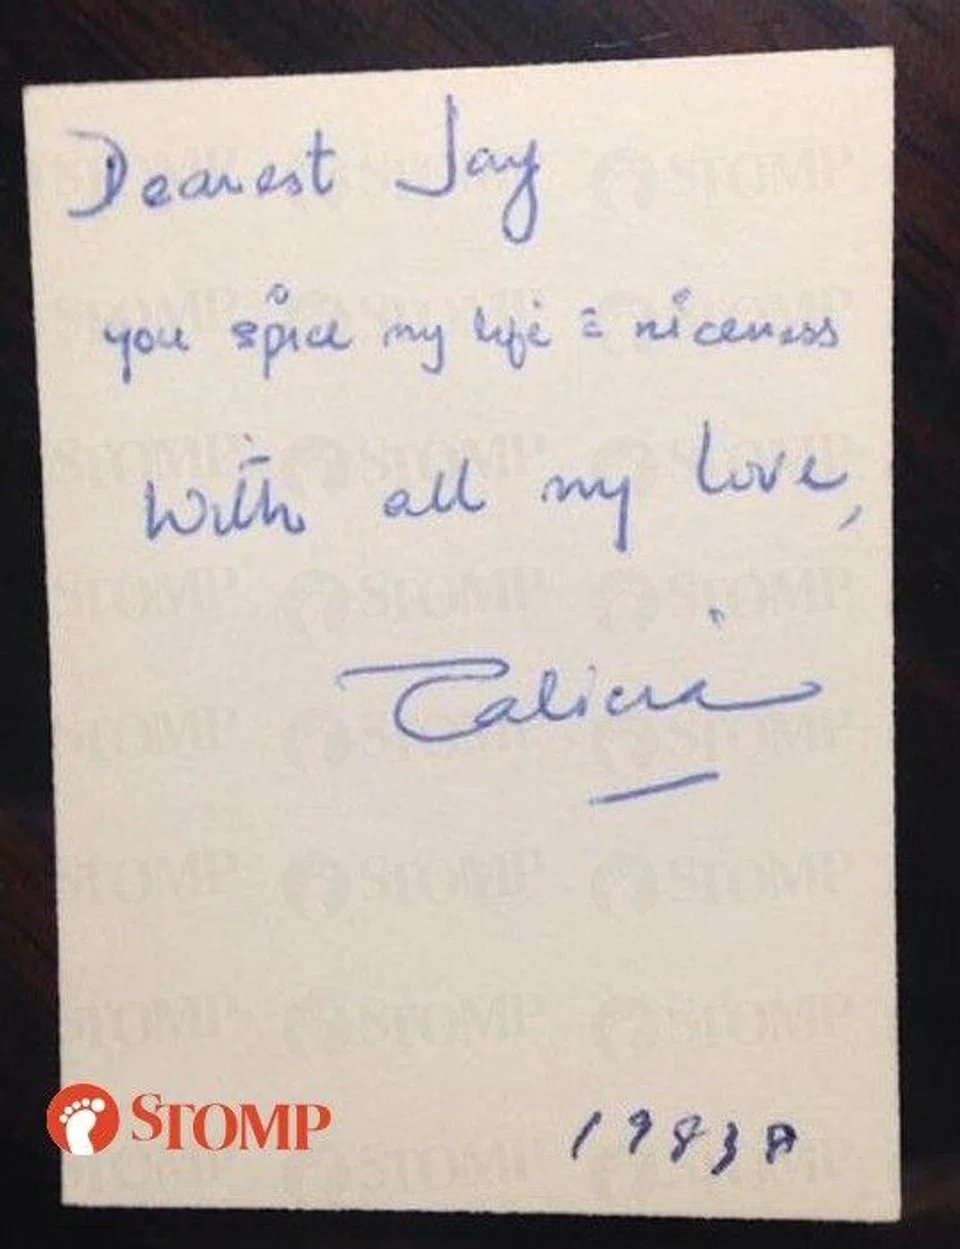 Dearest Jay
you spice my life c̄ niceness
With all my love,
STOMP
1983A